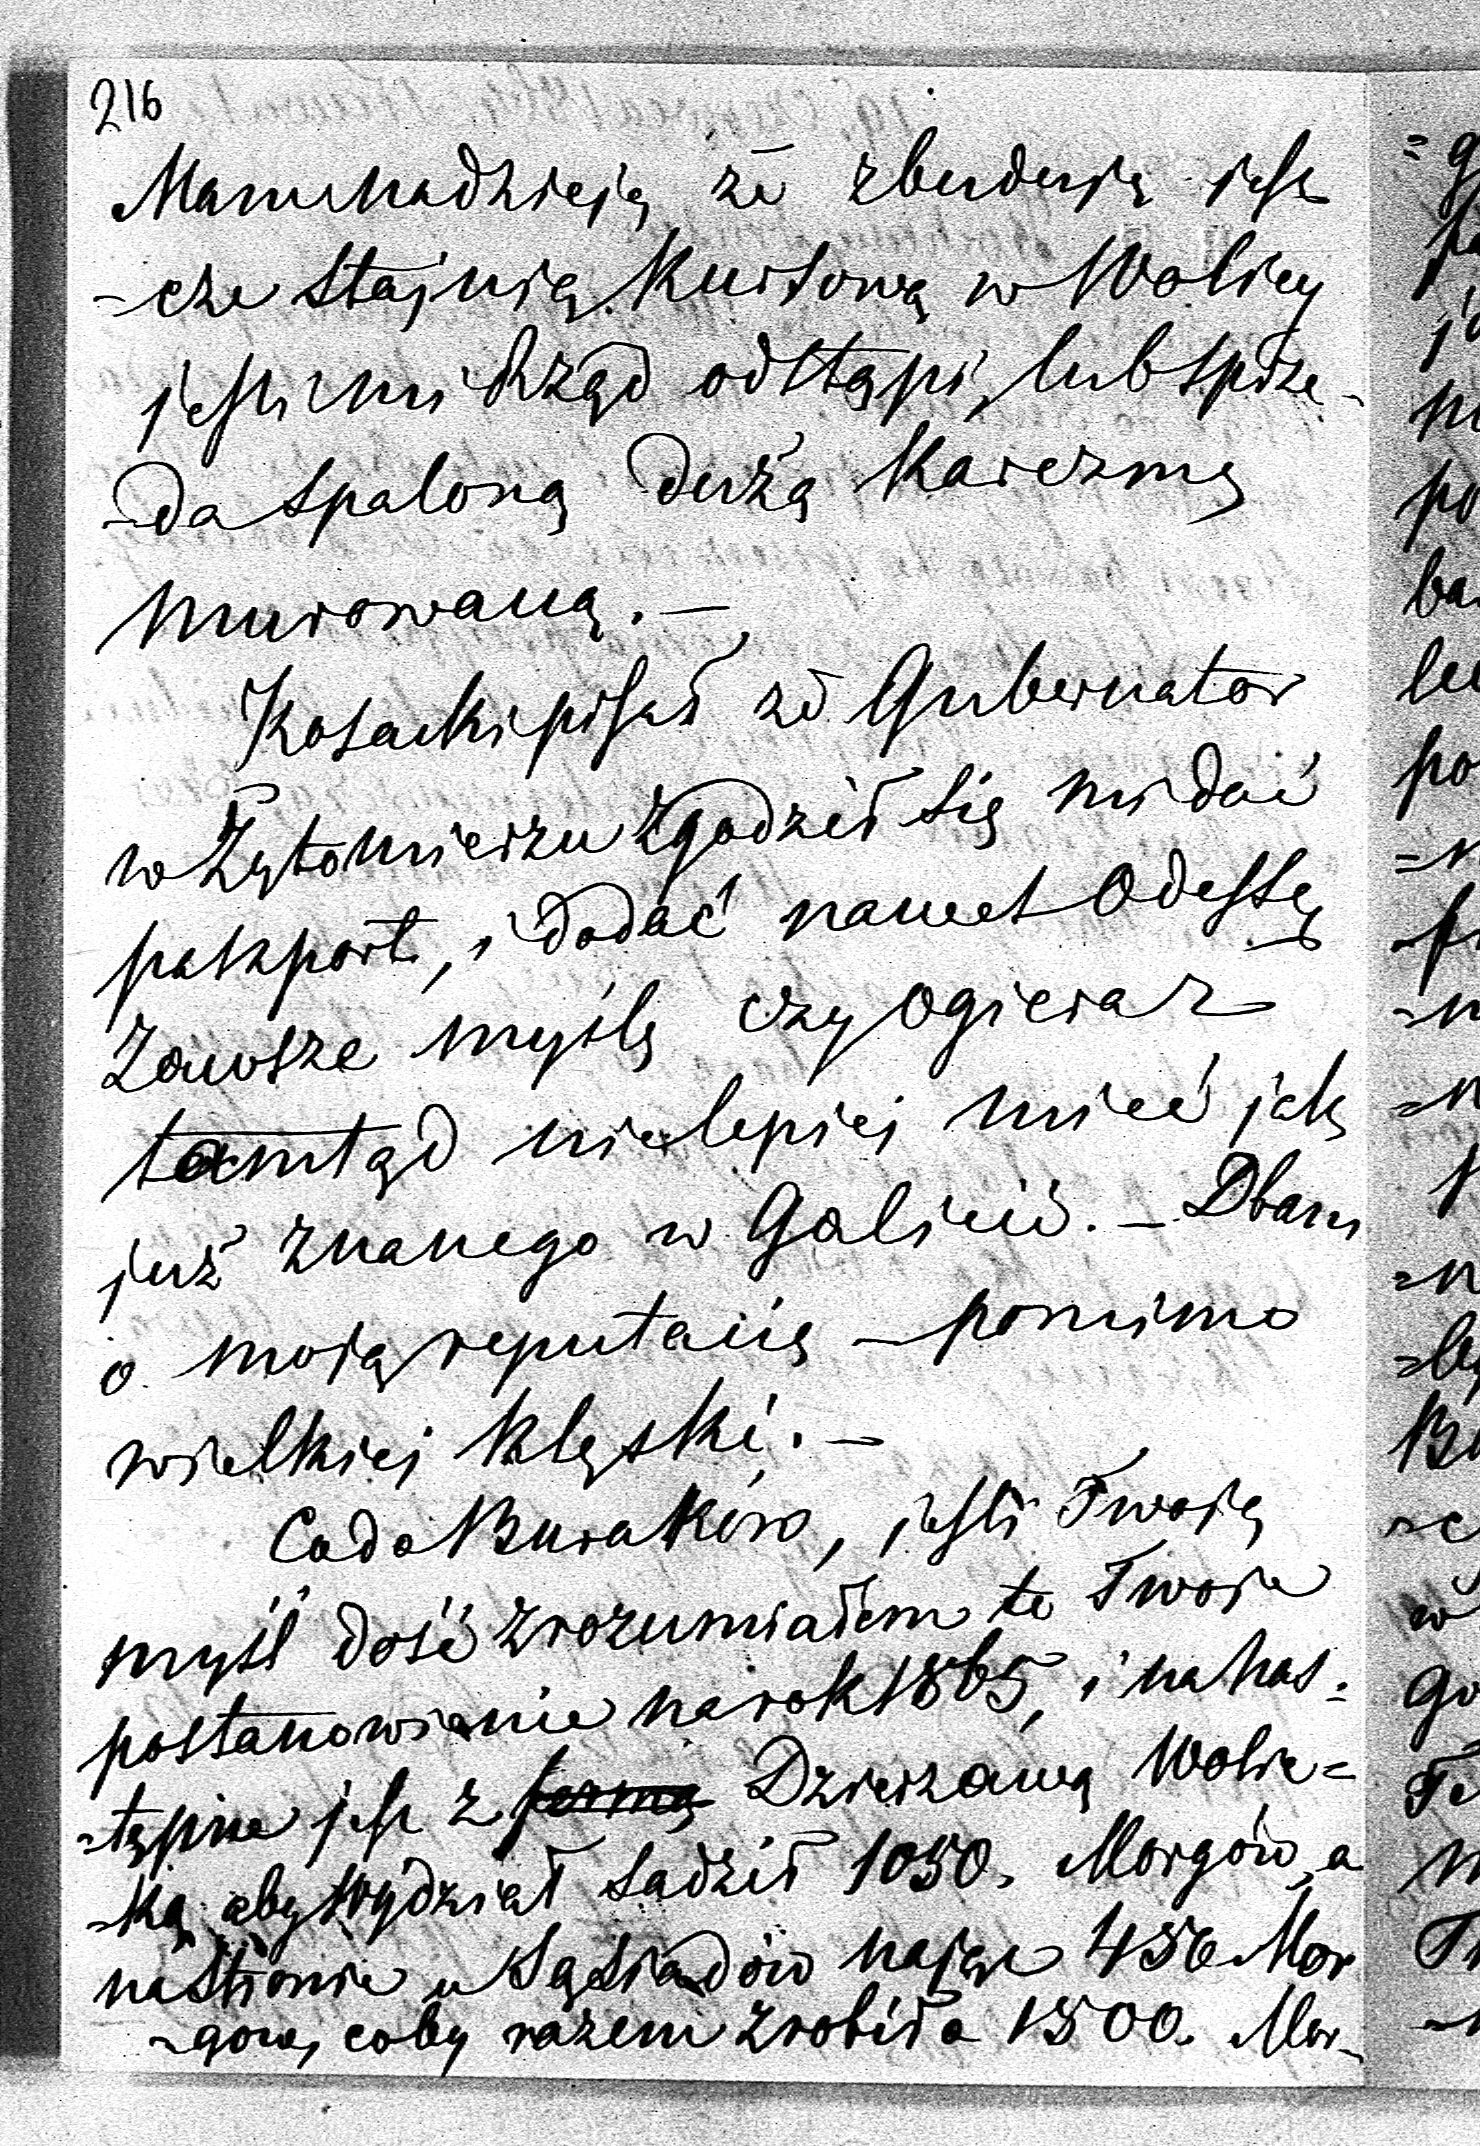 216
Mam nadzieją że zbuduję jesz
=cze Stajnię Kursową w Wolicy
jesli mi Rząd odstąpi, lub sprze-
-da spaloną dużą Karczmę
murowaną. —
Kosacki pisał że Gubernator
w Żytomierzu zgodził się mi dać
paszport, i dodać nawet Odessę
Zawsze myślę czy ogiera z
tamtąd nielepiej mieć jak
już znanego w Galicii. — Dbam
o moją reputacię — pomimo
wielkiej klęski. —
Co do Buraków, jesli Twoją
myśl dość zrozumiałem to Twoje
postanowienie na rok 1865, i na nas=
=tępne jest z fermą Dzierzawą Wolic=
=ką aby Wydział sadził 1050. Morgów, a
na Stronie u Sąsiadów najęte 450 Mor
-gow, coby razem zrobiło 1500. Mor-